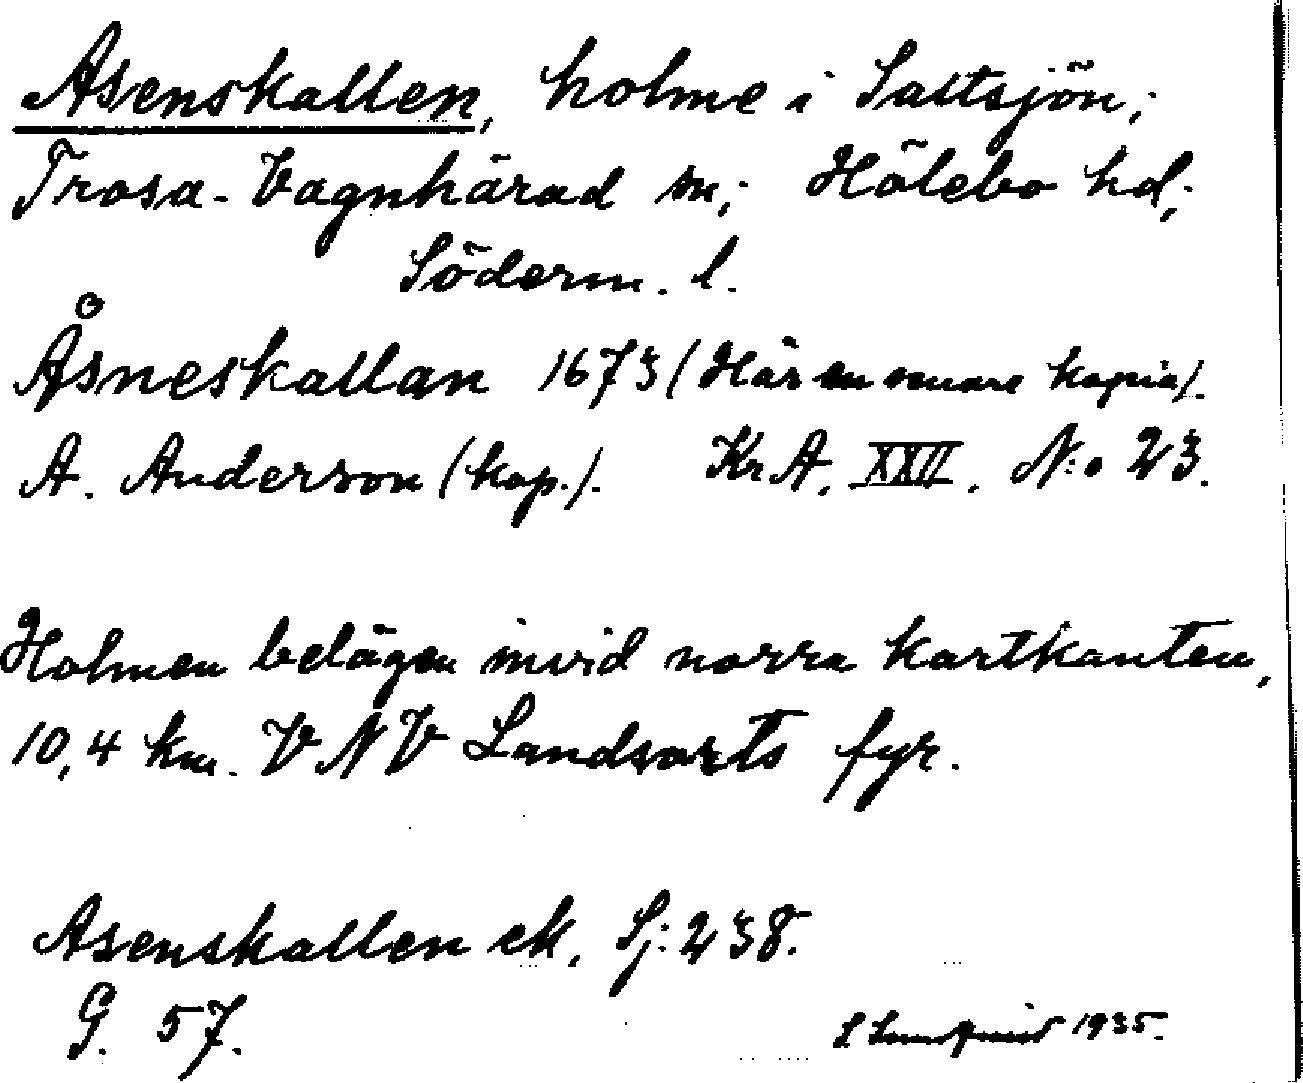 Asenskallen, holme i Saltsjön;
Trosa-Vagnhärad sn; Hölebo hd;
Söderm. l.
Åsneskallan 1673 (Här en senare kopia).
A. Anderson (kop.). Kr A. XXII. N:o 23.
Holmen belägen invid norra kartkanten,
10,4 km. VNV Landsorts fyr.
Asenskallen ek. Sj: 238.
G. 57.
1935.